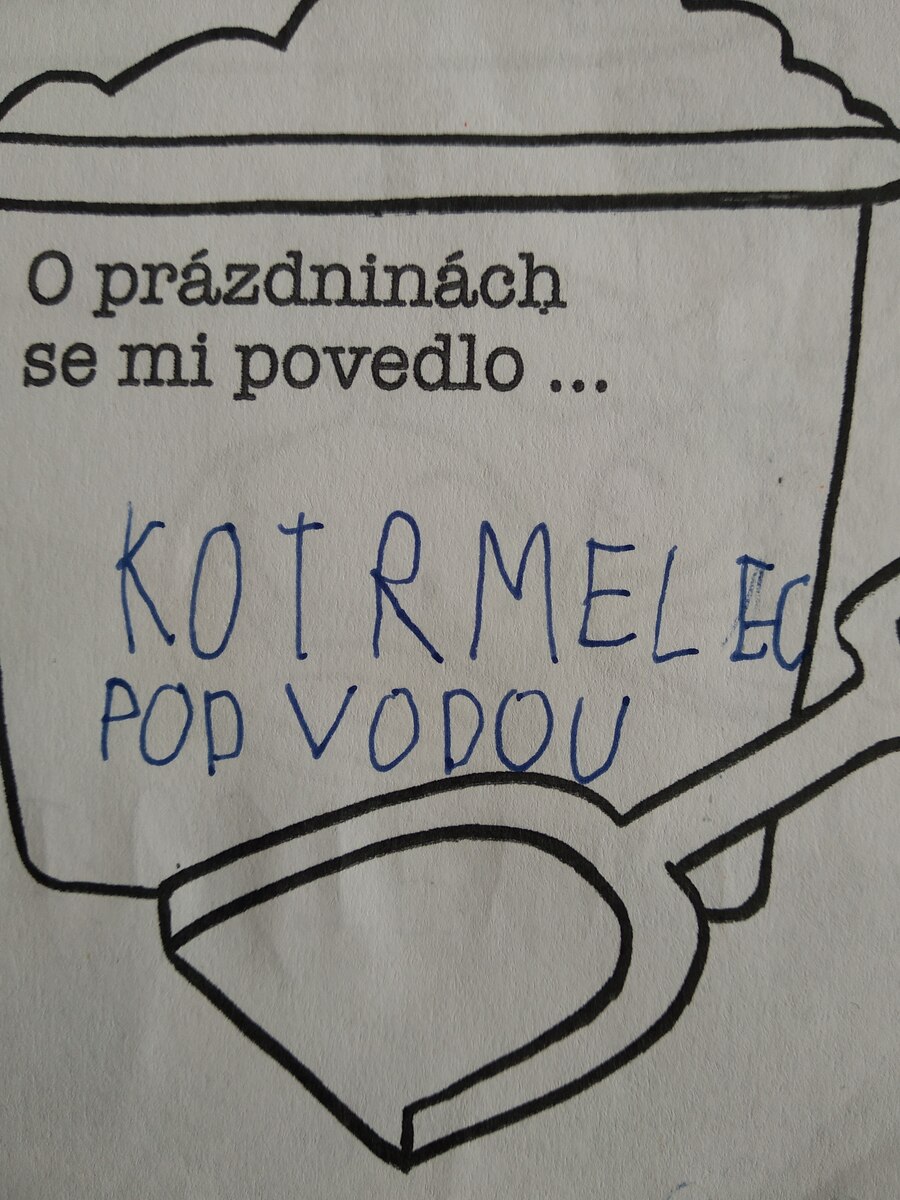 O prázdninách
se mi povedlo ...
KOTRMELEC
POD VODOU